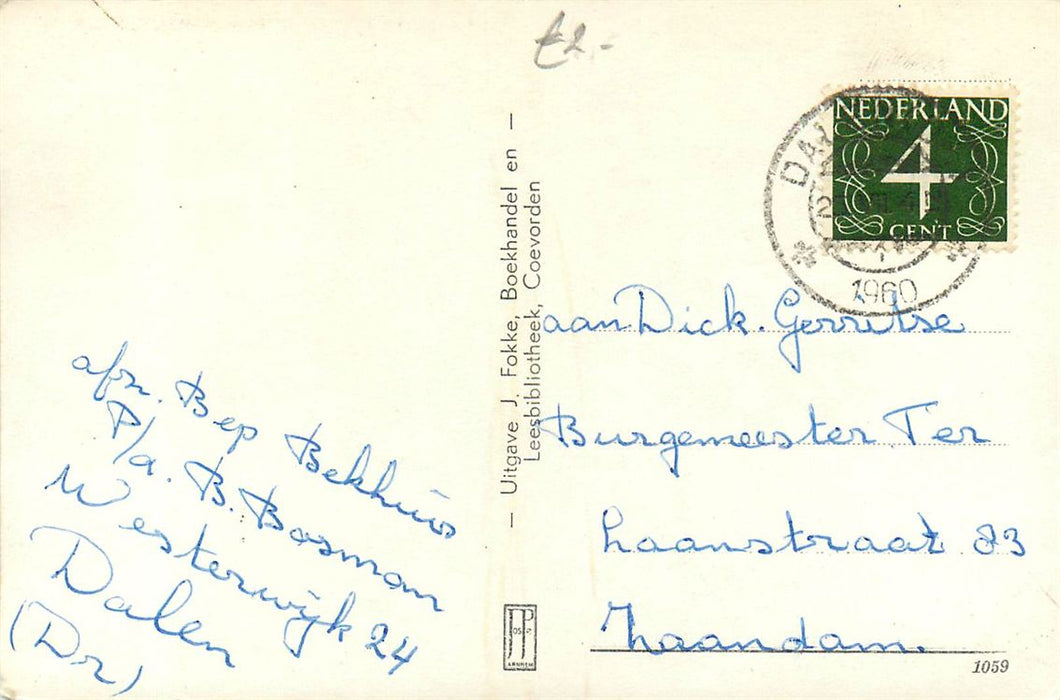 €2,-
NEDERLAND
4
CENT
DAL
1960
aan Dick. Gerritse
Burgemeester Ter
Laanstraat 83
Zaandam.
afz. Bep Bekhuis
P/a. B. Bosman
Westerwijk 24
Dalen
(Dr)
— Uitgave J. Fokke, Boekhandel en —
Leesbibliotheek, Coevorden
ARNHEM
1059